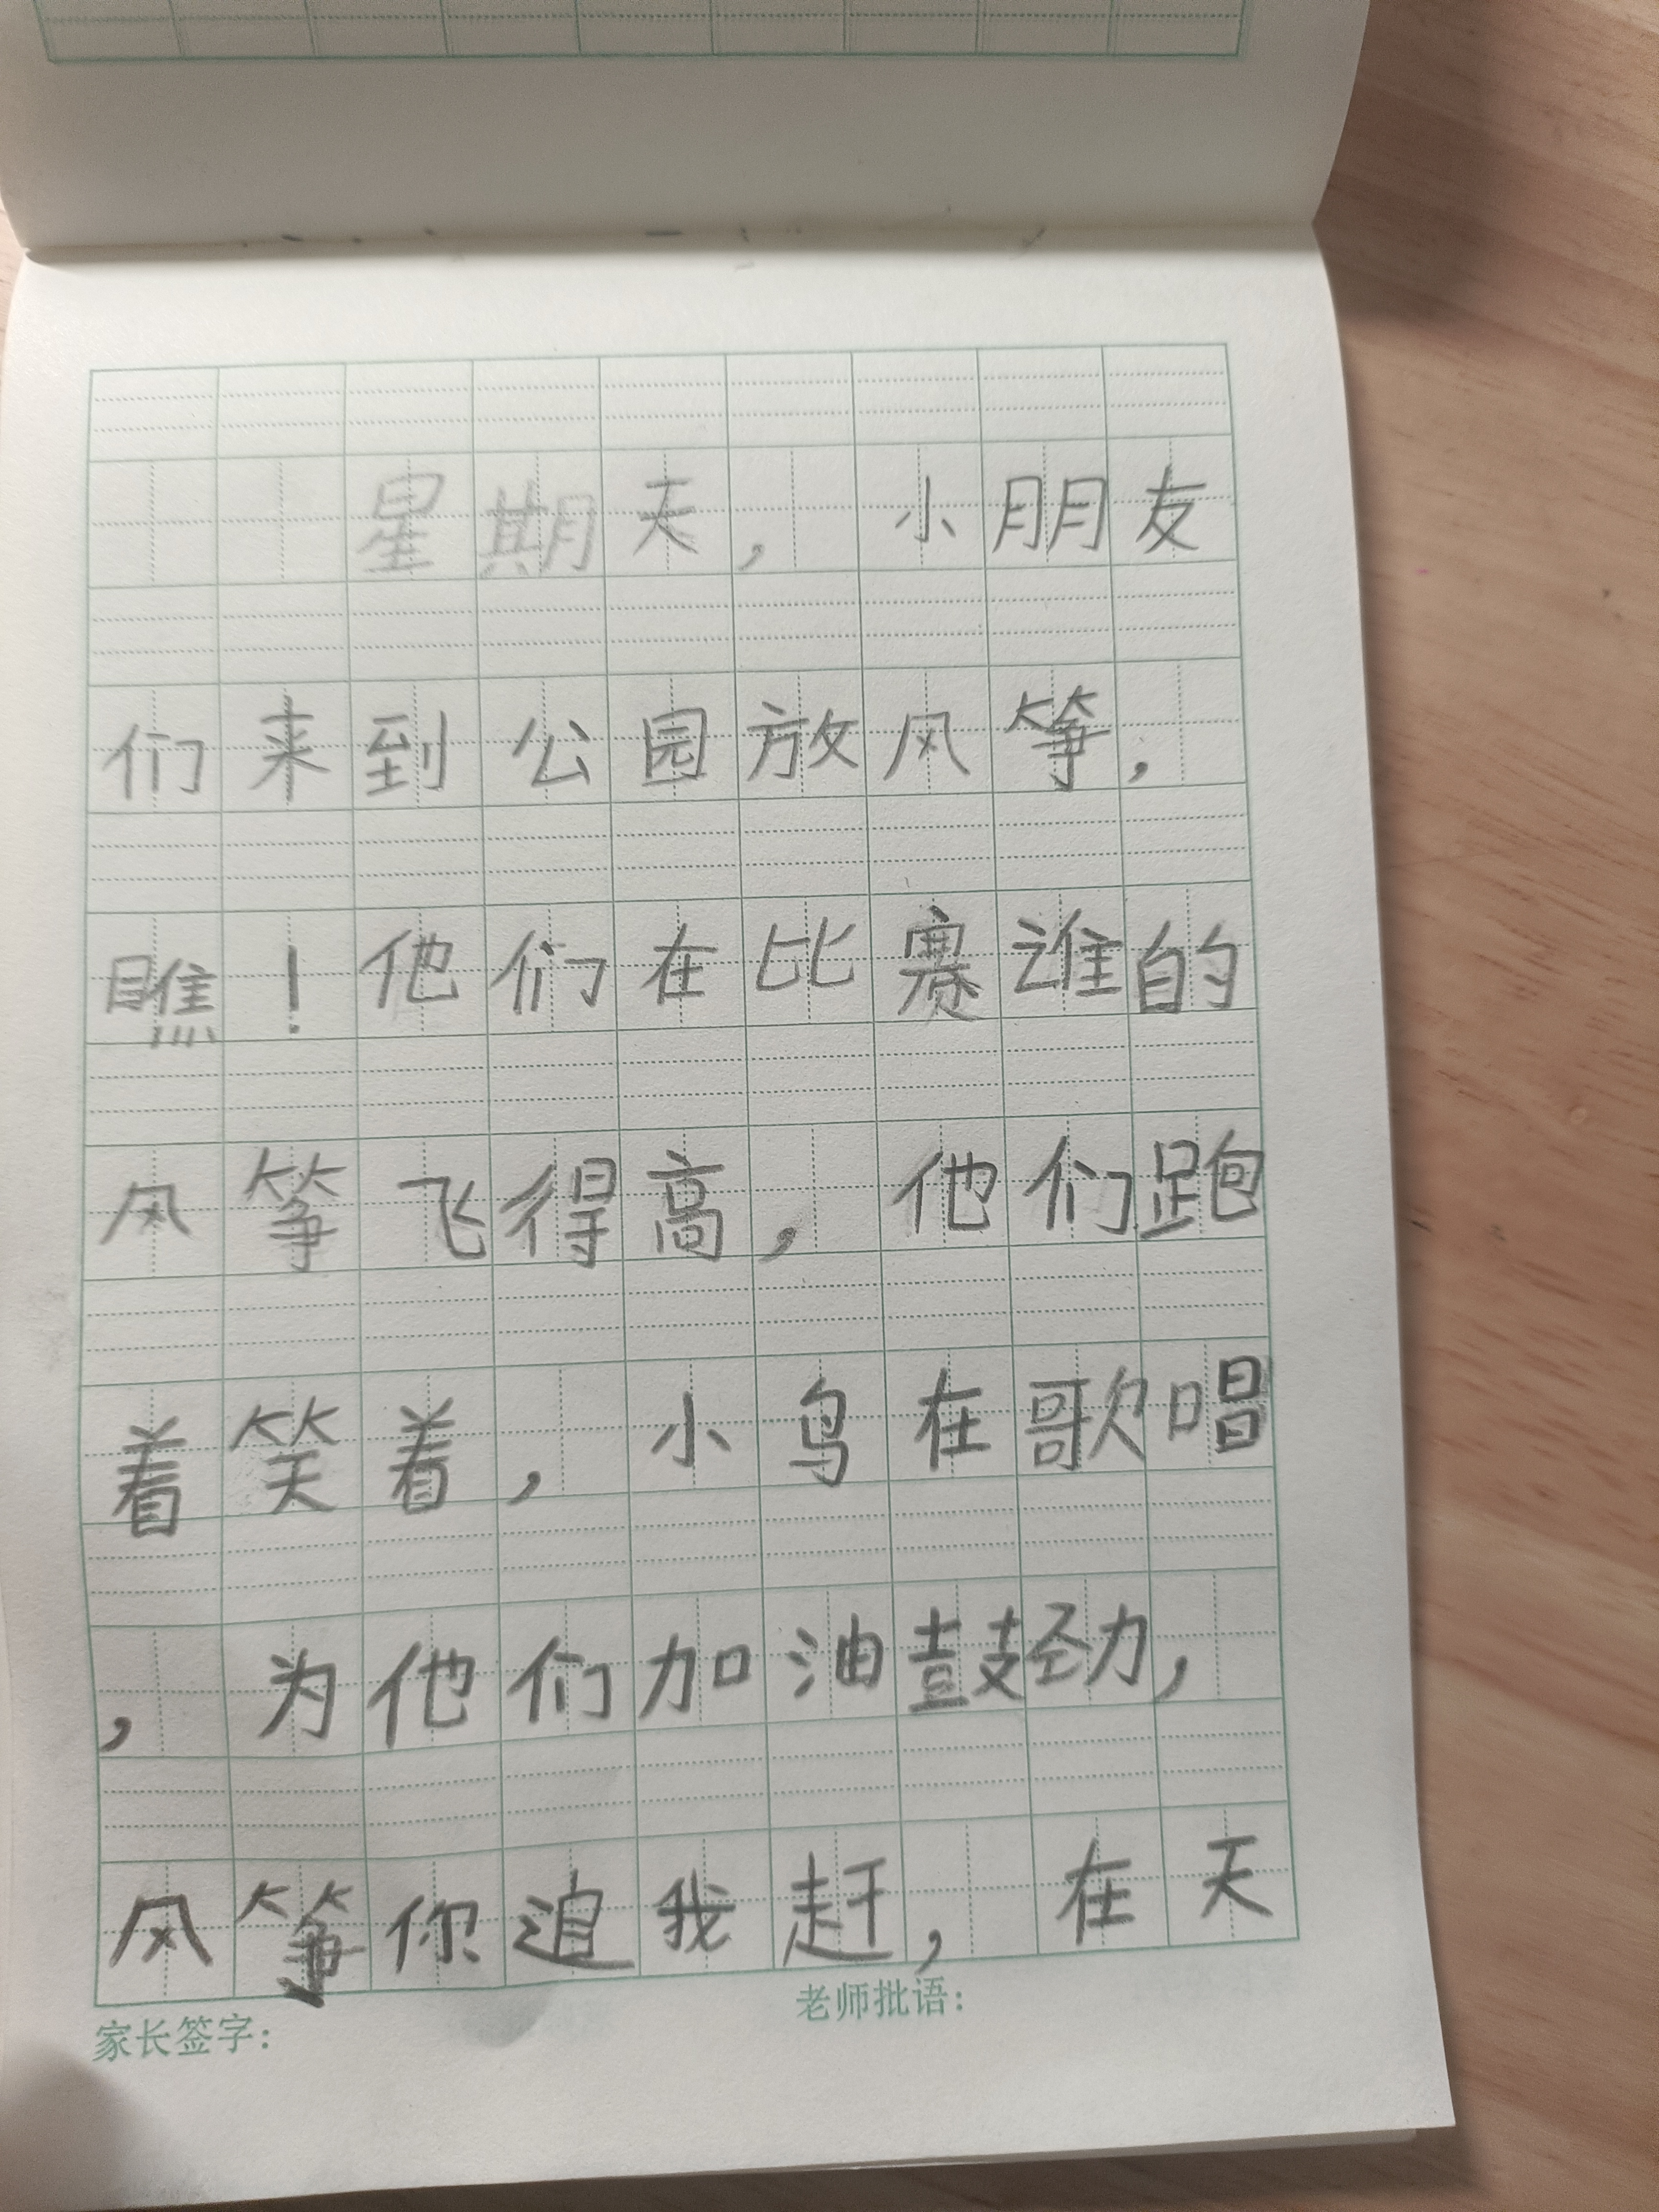 星期天，小朋友
们来到公园放风筝，
瞧！他们在比赛谁的
风筝飞得高，他们跑
着笑着，小鸟在歌唱
，为他们加油鼓劲，
风筝你追我赶，在天
家长签字：
老师批语：